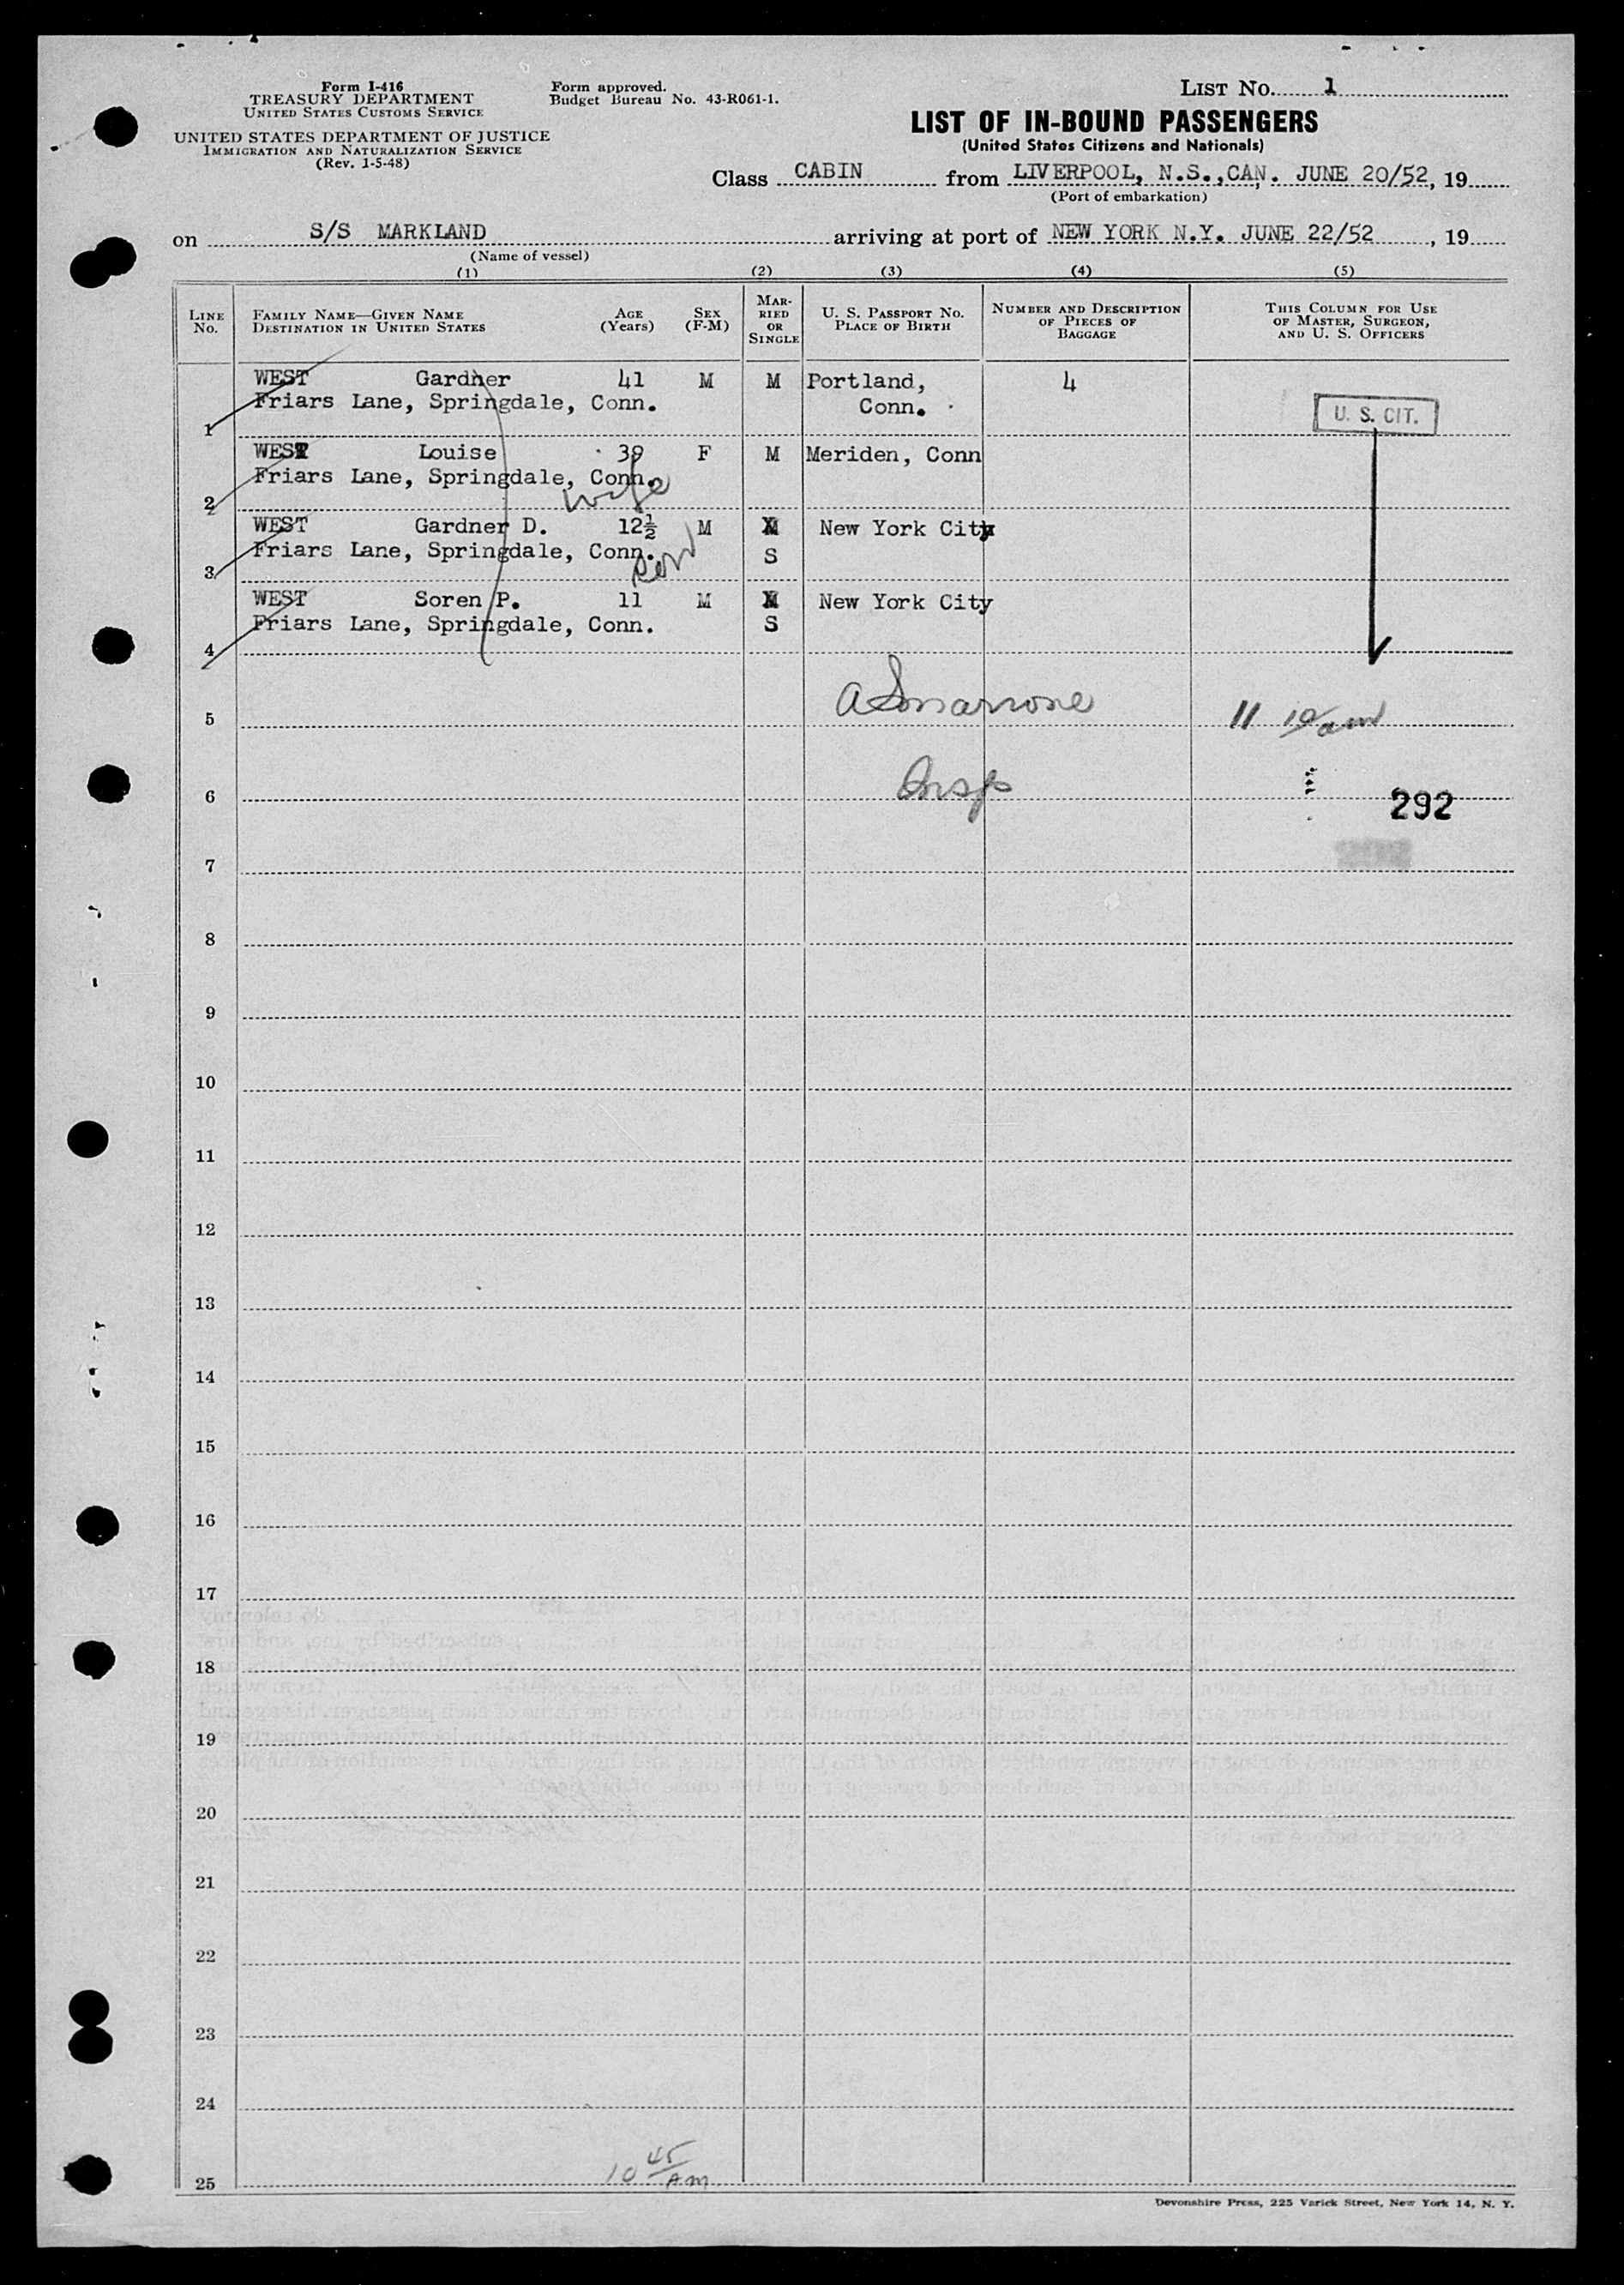 Form I-416
TREASURY DEPARTMENT
UNITED STATES CUSTOMS SERVICE
UNITED STATES DEPARTMENT OF JUSTICE
IMMIGRATION AND NATURALIZATION SERVICE
(Rev. 1-5-48)
Form approved.
Budget Bureau No. 43-R061-1.
LIST NO. 1
LIST OF IN-BOUND PASSENGERS
(United States Citizens and Nationals)
Class CABIN from LIVERPOOL, N.S.,CAN. JUNE 20/52, 19
(Port of embarkation)
on S/S MARKLAND arriving at port of NEW YORK N.Y. JUNE 22/52, 19
(Name of vessel)
(1) (2) (3) (4) (5)
LINE NO.
FAMILY NAME—GIVEN NAME
DESTINATION IN UNITED STATES
AGE (Years)
SEX (F-M)
MARRIED OR SINGLE
U. S. PASSPORT NO.
PLACE OF BIRTH
NUMBER AND DESCRIPTION OF PIECES OF BAGGAGE
THIS COLUMN FOR USE OF MASTER, SURGEON, AND U. S. OFFICERS
WEST Gardner 41 M M Portland, 4
Friars Lane, Springdale, Conn. Conn.
1
U. S. CIT.
WEST Louise 39 F M Meriden, Conn
Friars Lane, Springdale, Conn.
2 wife
WEST Gardner D. 12½ M M New York City
Friars Lane, Springdale, Conn. S
3 son
WEST Soren P. 11 M M New York City
Friars Lane, Springdale, Conn. S
4
5 11 10/am
6 Insp
292
7
8
9
10
11
12
13
14
15
16
17
18
19
20
21
22
23
24
25 10 45/AM
Devonshire Press, 225 Varick Street, New York 14, N. Y.